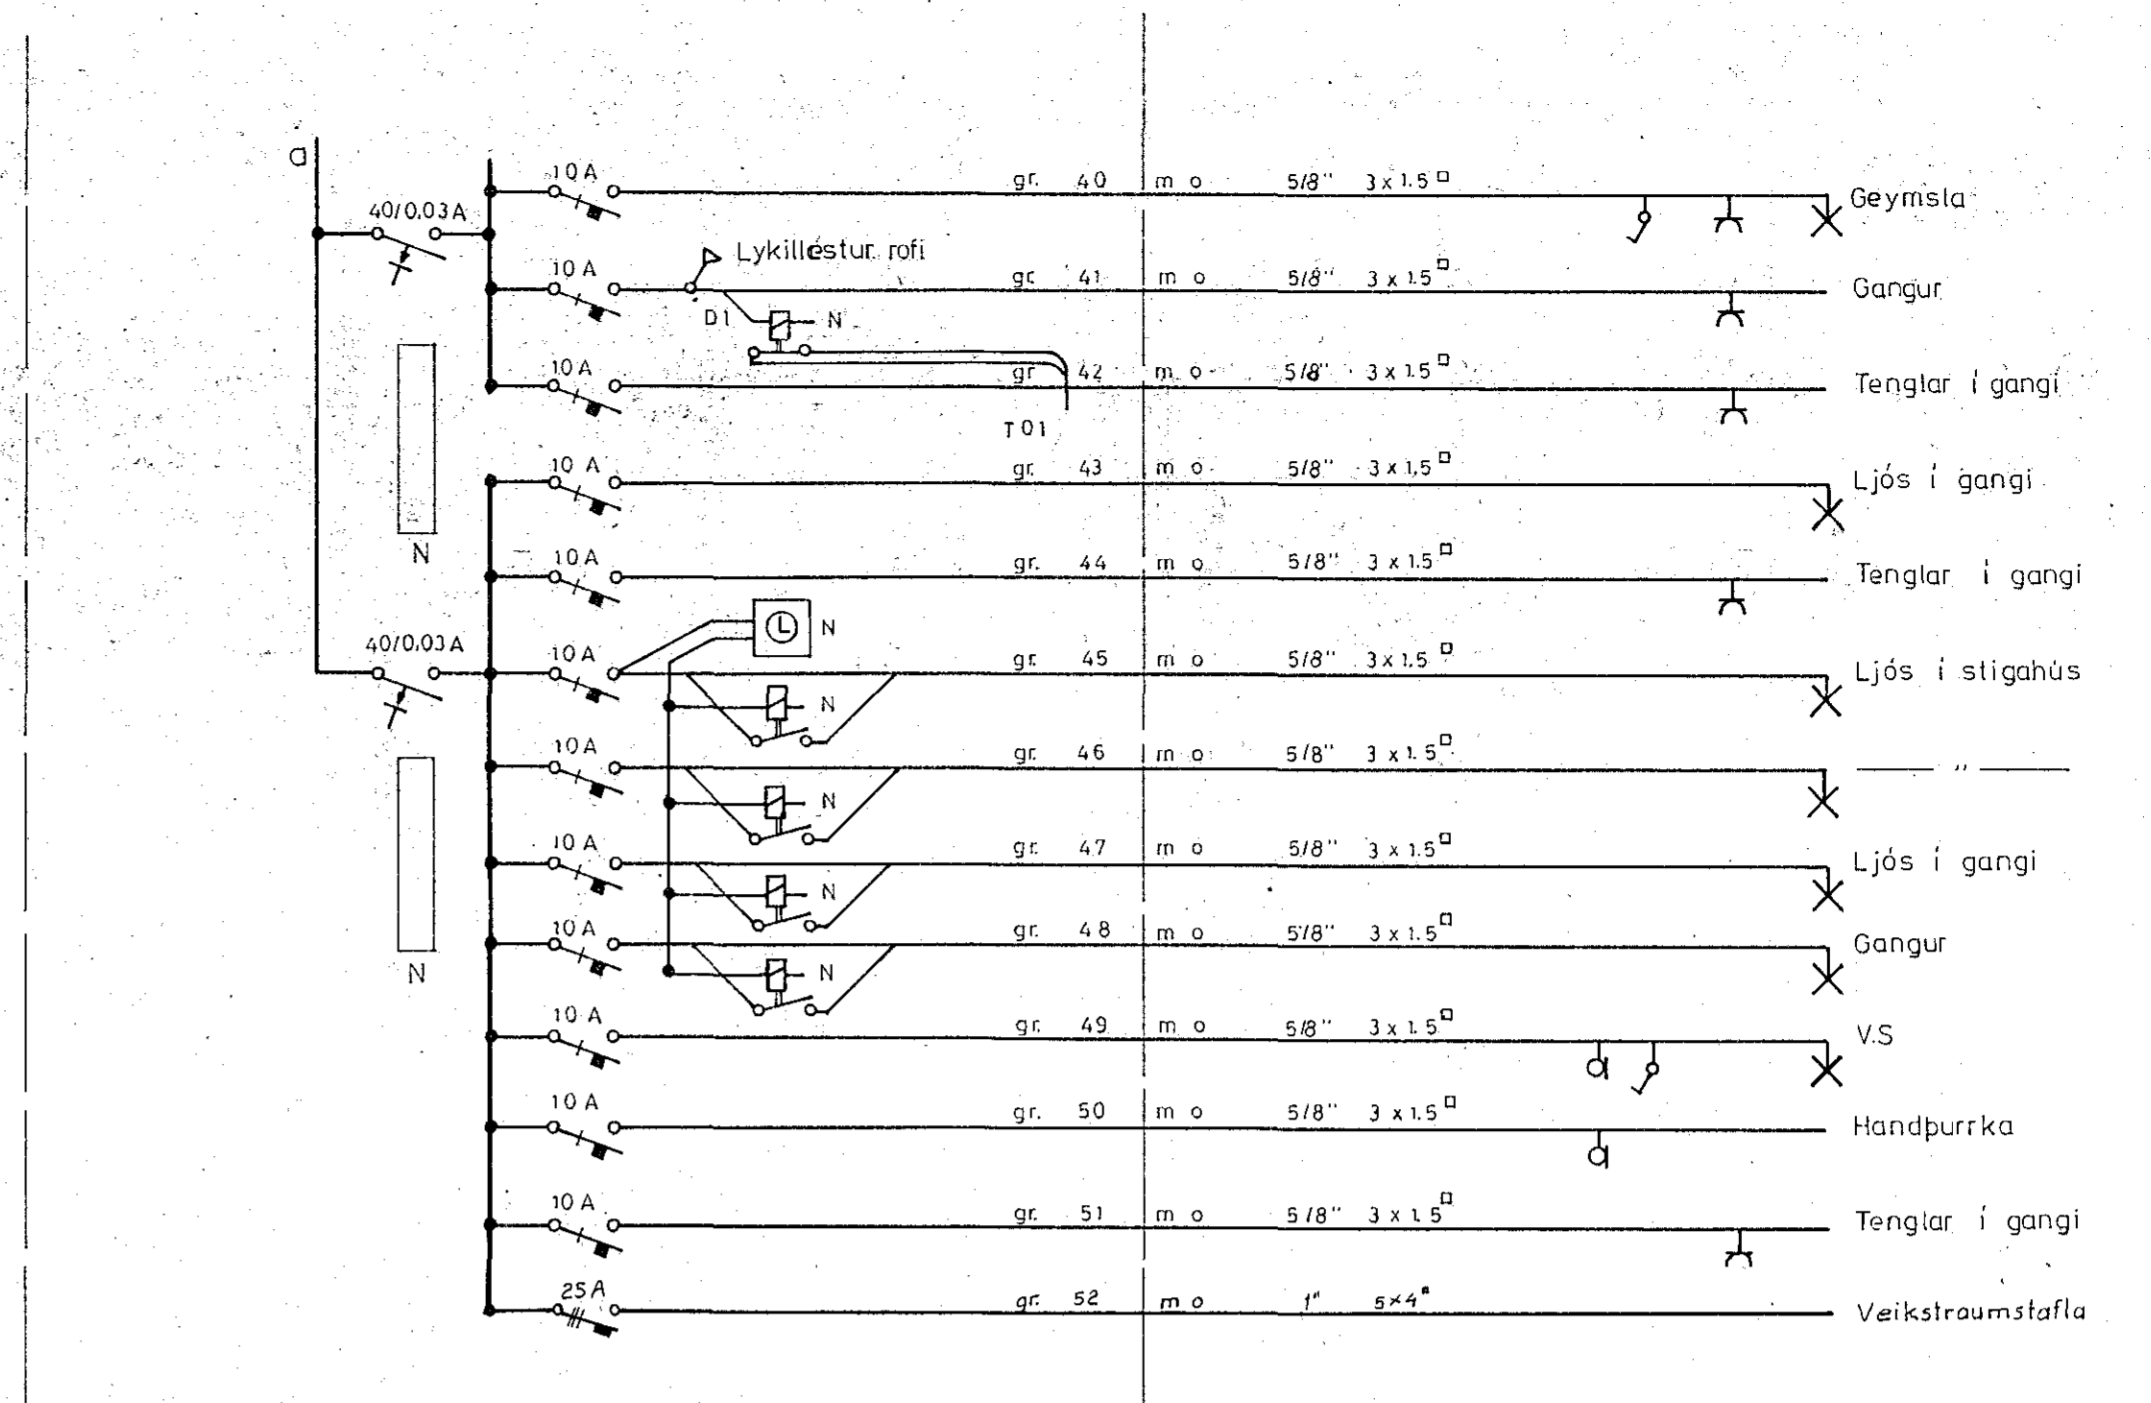 a
10 A gr. 40 m o 5/8" 3 x 1.5 □ Geymsla
40/0.03 A
Lykillæstur rofi
10 A gr. 41 m o 5/8" 3 x 1.5 □ Gangur
D1 N
10 A gr. 42 m o 5/8" 3 x 1.5 □ Tenglar í gangi
T 01
10 A gr. 43 m o 5/8" 3 x 1.5 □ Ljós í gangi
N
10 A gr. 44 m o 5/8" 3 x 1.5 □ Tenglar í gangi
N
40/0.03 A
10 A gr. 45 m o 5/8" 3 x 1.5 □ Ljós í stigahús
N
10 A gr. 46 m o 5/8" 3 x 1.5 □ —— " ——
N
10 A gr. 47 m o 5/8" 3 x 1.5 □ Ljós í gangi
N
10 A gr. 48 m o 5/8" 3 x 1.5 □ Gangur
N N
10 A gr. 49 m o 5/8" 3 x 1.5 □ V.S
10 A gr. 50 m o 5/8" 3 x 1.5 □ Handþurrka
10 A gr. 51 m o 5/8" 3 x 1.5 □ Tenglar í gangi
25 A gr. 52 m o 1" 5x4 □ Veikstraumstafla